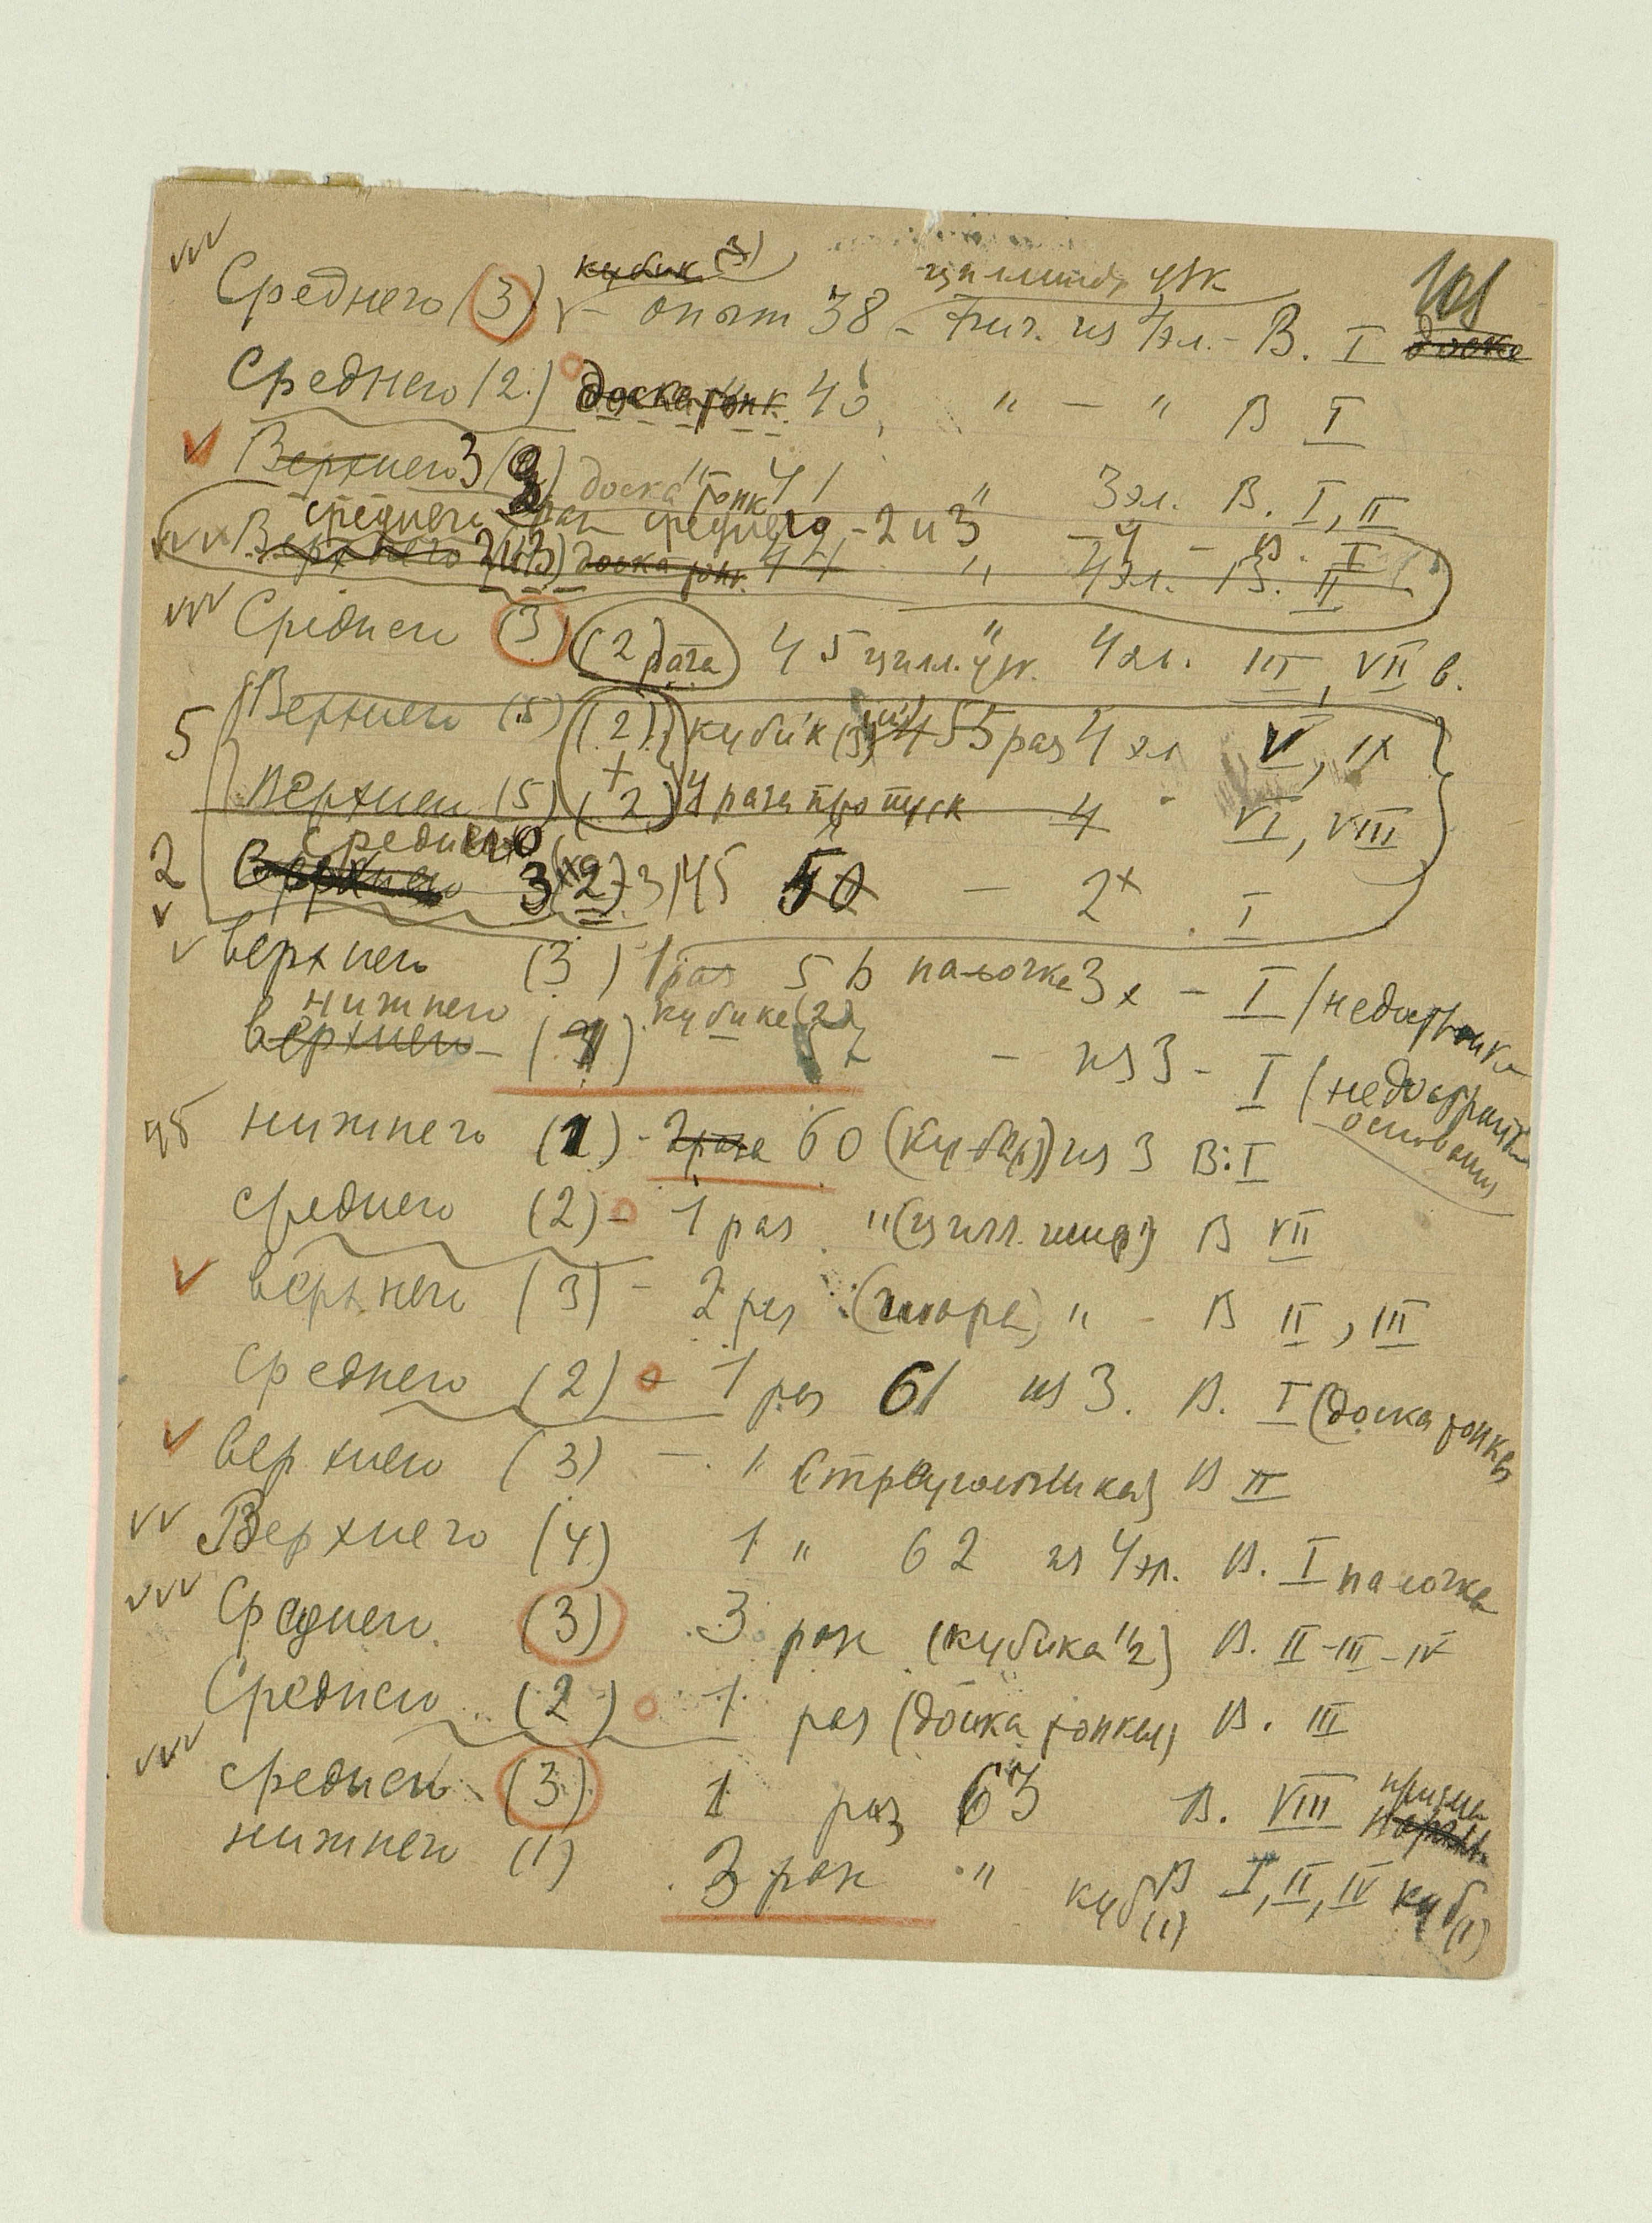 кубик (3) цилиндр узк 101
Среднего (3) – опыт 38 – 7 из 4эл. – В. I доска
Среднего (2) доска тонк. 40 " — " В I
Верхнего 3 (2) доска тонк 41 " 3эл. В. I, II
среднего раз среднего - 2 и 3 – 4 – В. I
Верхнего 2(3) доска тонк. 44 " 4эл. В. II
Среднего (3) (2 раза) 45 цилл. узк. 4эл. III, VII в.
5 Верхнего (5) (2) кубик (3) 55 раз 4 эл V, IX
Верхнего (5) + (2) 4 раза пропуск 4 VI, VIII
среднего
2 Верхнего 3 (2) 3/45 50 — 2х I
верхнего (3) 1 раз 56 палочке 3х – I (недост
нижнего кубике (2)
верхнего – (1) 57 – из 3 – I (недост
основания
нижнего (1) - 2 раза 60 (куба) из 3 В: I
среднего (2) – 1 раз " (цилл. шир) В VII
верхнего (3) – 2 раз (шара) " – В II, III
Среднего (2) – 1 раз 61 из 3. В. I (доска тонкая
верхнего (3) – " (треугольника) В II
Верхнего (4) 1 " 62 из 4эл. В. I палочка
Среднего (3) 3 раза (кубика 1/2) В. II – III – IV
Среднего (2) 1 раз (доска тонкая) В. III
призма
среднего (3) 1 раз 63 В. VIII
нижнего (1) 3 раза " В I, II, IV куб (1)
куб (1)